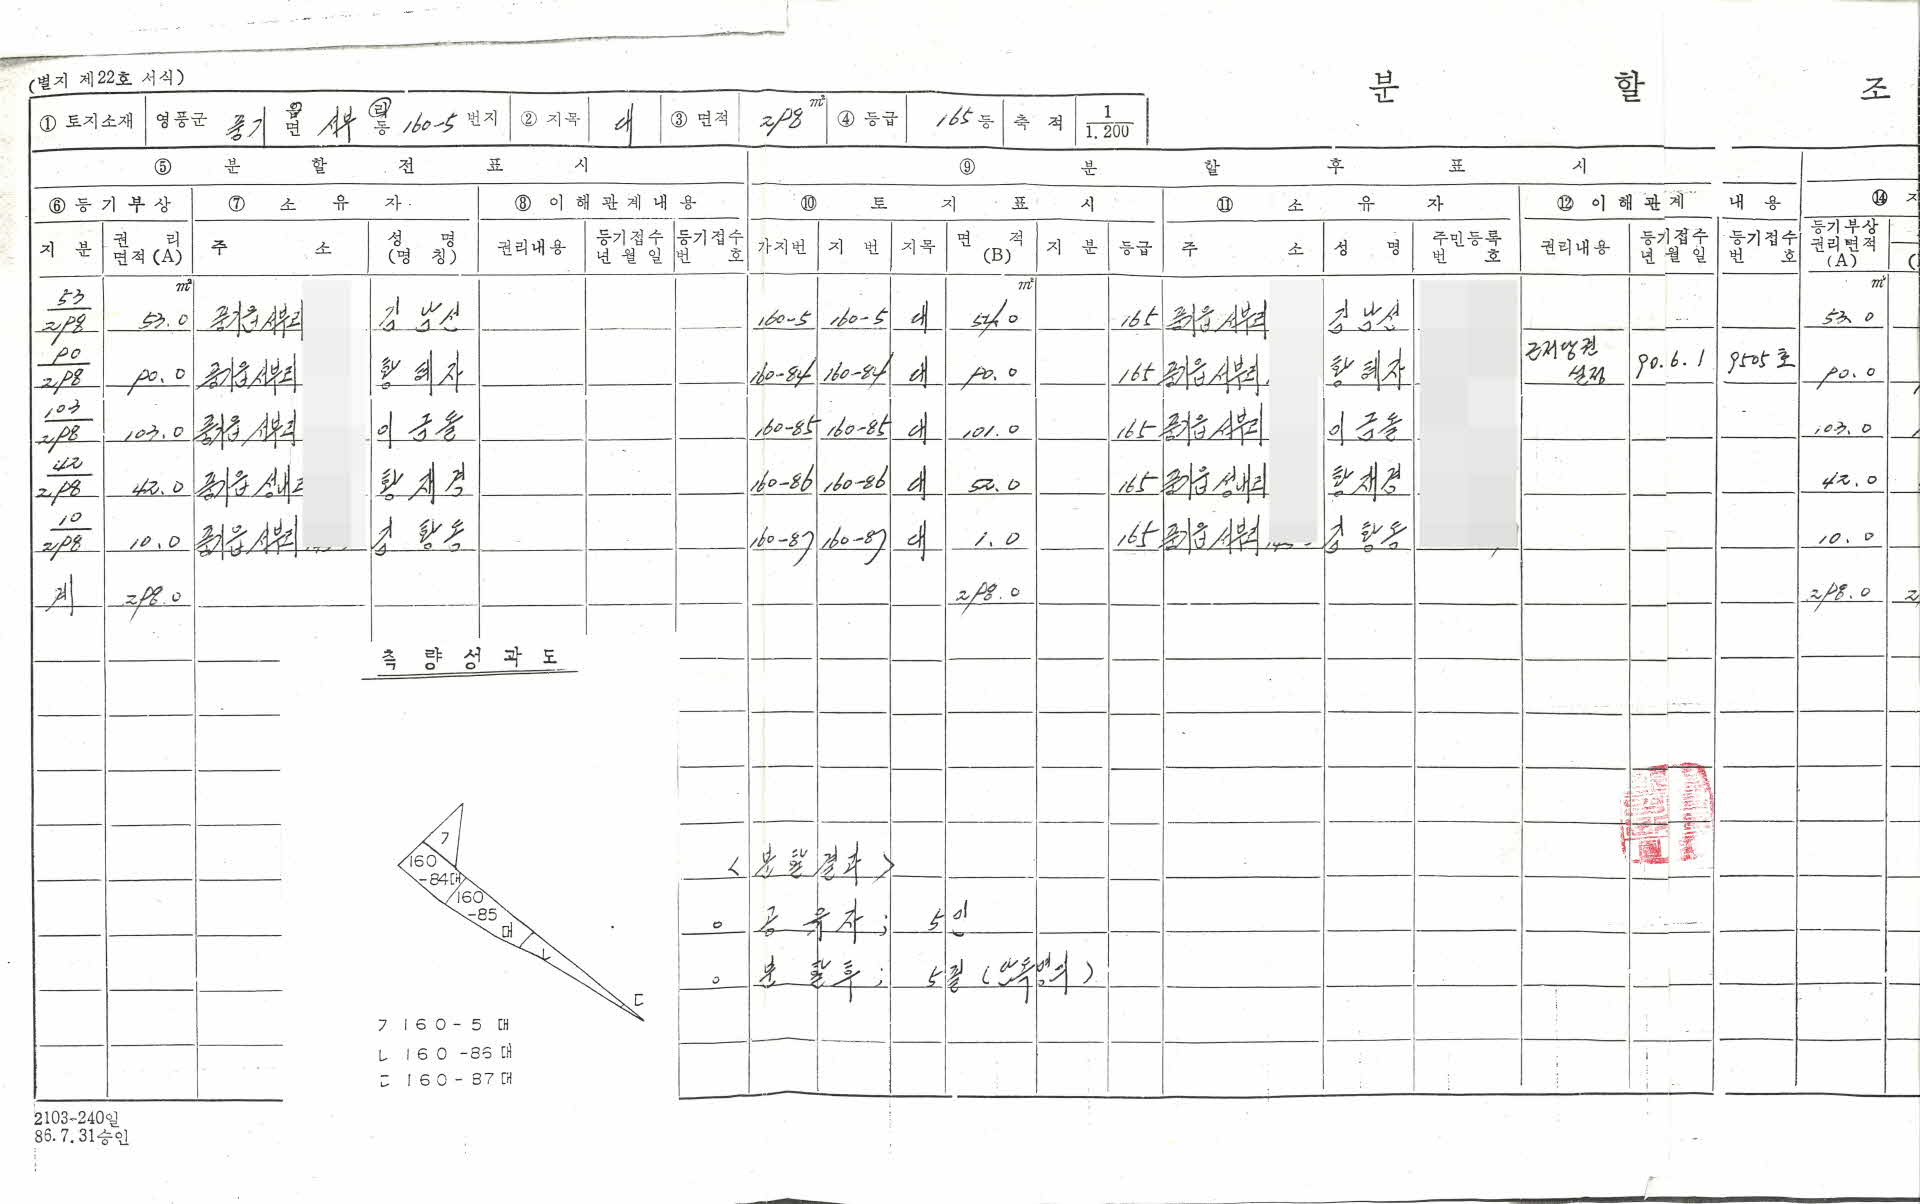 (별지 제22호 서식)
분 할 조
① 토지소재 영풍군 풍기 읍면 서부 리동 160-5 번지 ② 지목 대 ③ 면적 298 m² ④ 등급 165 등 축 적 1/1.200
⑤ 분 할 전 표 시 ⑨ 분 할 후 표 시
⑥ 등기부상 ⑦ 소 유 자 ⑧ 이해관계내용 ⑩ 토 지 표 시 ⑪ 소 유 자 ⑫ 이해관계 내 용 ⑭
지 분 권 리 면적(A) 주 소 성 명 (명 칭) 권리내용 등기접수 년 월 일 등기접수 번 호 가지번 지 번 지목 면 적 (B) 지 분 등급 주 소 성 명 주민등록 번 호 권리내용 등기접수 년 월 일 등기접수 번 호 등기부상 권리면적 (A)
m² m² m²
53/298 53.0 풍기읍 서부리 김남선 160-5 160-5 대 54.0 165 풍기읍 서부리 김남선 53.0
90/298 90.0 풍기읍 서부리 황혜자 160-84 160-84 대 90.0 165 풍기읍 서부리 황혜자 근저당권 설정 90.6.1 9505호 90.0
103/298 103.0 풍기읍 서부리 160-85 160-85 대 101.0 165 풍기읍 서부리 103.0
42/298 42.0 풍기읍 성내리 황재경 160-86 160-86 대 52.0 165 풍기읍 성내리 황재경 42.0
10/298 10.0 풍기읍 서부리 김황동 160-87 160-87 대 1.0 165 풍기읍 서부리 김황동 10.0
계 298.0 298.0 298.0
측 량 성 과 도
ㄱ
160
-84대
160
-85
대
ㄴ
ㄷ
ㄱ 160-5 대
ㄴ 160-86 대
ㄷ 160-87 대
<분할결과>
○ 공유자; 5인
○ 분할후; 5필 (단독명의)
2103-240일
86.7.31승인